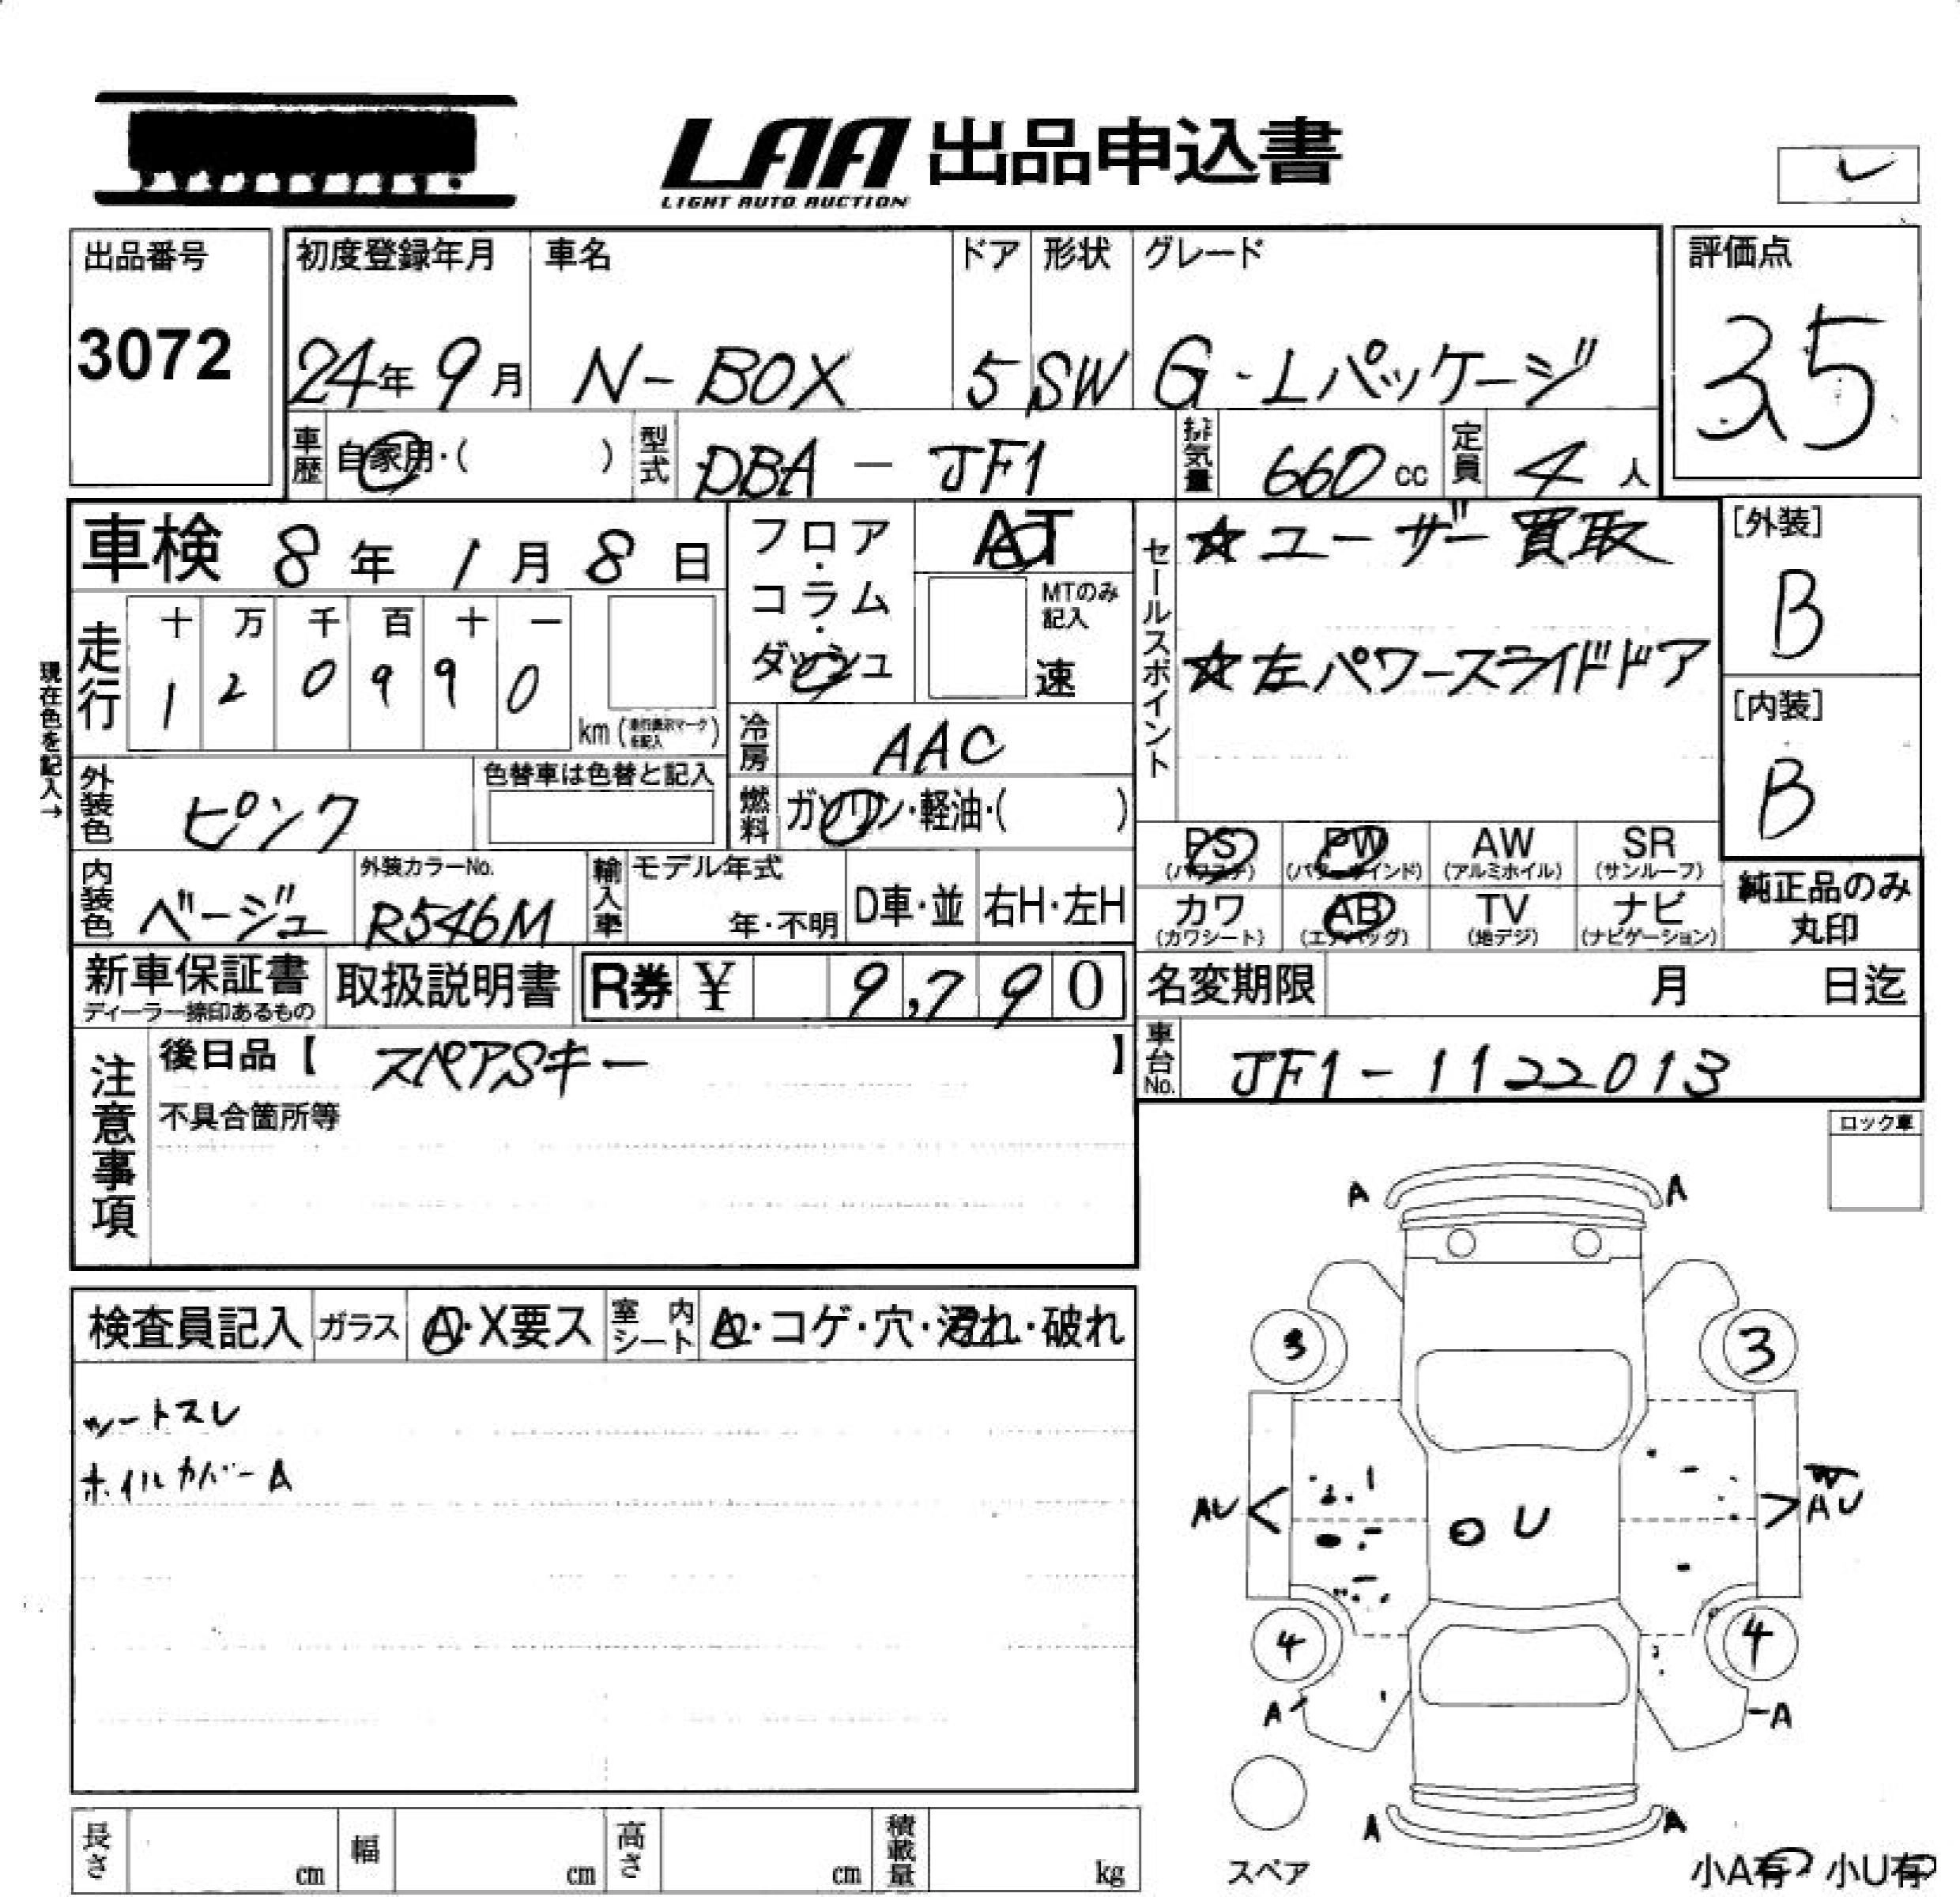 LAA 出品申込書
LIGHT AUTO AUCTION
出品番号
3072
初度登録年月
24年 9月
車名
N-BOX
ドア
5
形状
SW
グレード
G・Lパッケージ
評価点
3.5
車歴
自家用・( )
型式
DBA - JF1
排気量
660 cc
定員
4 人
車検 8年 1月 8日
フロア・コラム・ダッシュ
AT
MTのみ記入
速
セールスポイント
☆ユーザー買取
☆左パワースライドドア
[外装]
B
[内装]
B
現在色を記入→
走行
十 万 千 百 十 一
1 2 0 9 9 0
km (走行表示マークを記入)
冷房
AAC
外装色
ピンク
色替車は色替と記入
燃料
ガソリン・軽油・( )
PS
(パワステ)
PW
(パワーウインド)
AW
(アルミホイル)
SR
(サンルーフ)
カワ
(カワシート)
AB
(エアバッグ)
TV
(地デジ)
ナビ
(ナビゲーション)
純正品のみ
丸印
内装色
ベージュ
外装カラーNo.
R546M
輸入車
モデル年式
年・不明
D車・並
右H・左H
新車保証書
ディーラー捺印あるもの
取扱説明書
R券 ¥ 9,790
名変期限 月 日迄
車台No.
JF1-1122013
注意事項
後日品【 スペアSキー 】
不具合箇所等
ロック車
検査員記入
ガラス
A・X要ス
室内シート
A・コゲ・穴・汚れ・破れ
シートスレ
ホイルカバーA
A A
3 3
AU U W AU
4 4
A A
A A
スペア
小A有 小U有
長さ cm
幅 cm
高さ cm
積載量 kg